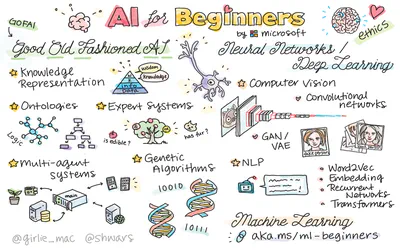 GOFAI
AI for Beginners
by microsoft
ethics
Good Old Fashioned AI
Knowledge
Representation
wisdom
knowledge
info
data
Ontologies
Logic
Expert Systems
is edible?
has fur?
Multi-agent
systems
Genetic
Algorithms
10010
10111
Neural Networks /
Deep Learning
Computer Vision
Convolutional
networks
GAN/
VAE
NLP
Word2Vec
Embedding
Recurrent
Networks
Transformers
Machine Learning
aka.ms/ml-beginners
@girlie_mac @shwars